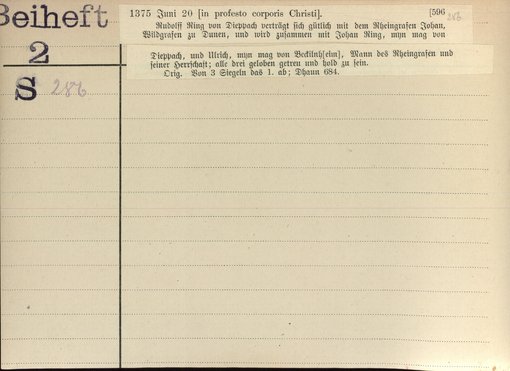 Beiheft
2
S 286
1375 Juni 20 [in profesto corporis Christi]. [596 286
Rudolff Ring von Dieppach verträgt sich gütlich mit dem Rheingrafen Johan,
Wildgrafen zu Dunen, und wird zusammen mit Johan Ring, myn mag von
Dieppach, und Ulrich, myn mag von Beckilnh[eim], Mann des Rheingrafen und
seiner Herrschaft; alle drei geloben getreu und hold zu sein.
Orig. Von 3 Siegeln das 1. ab; Dhaun 684.